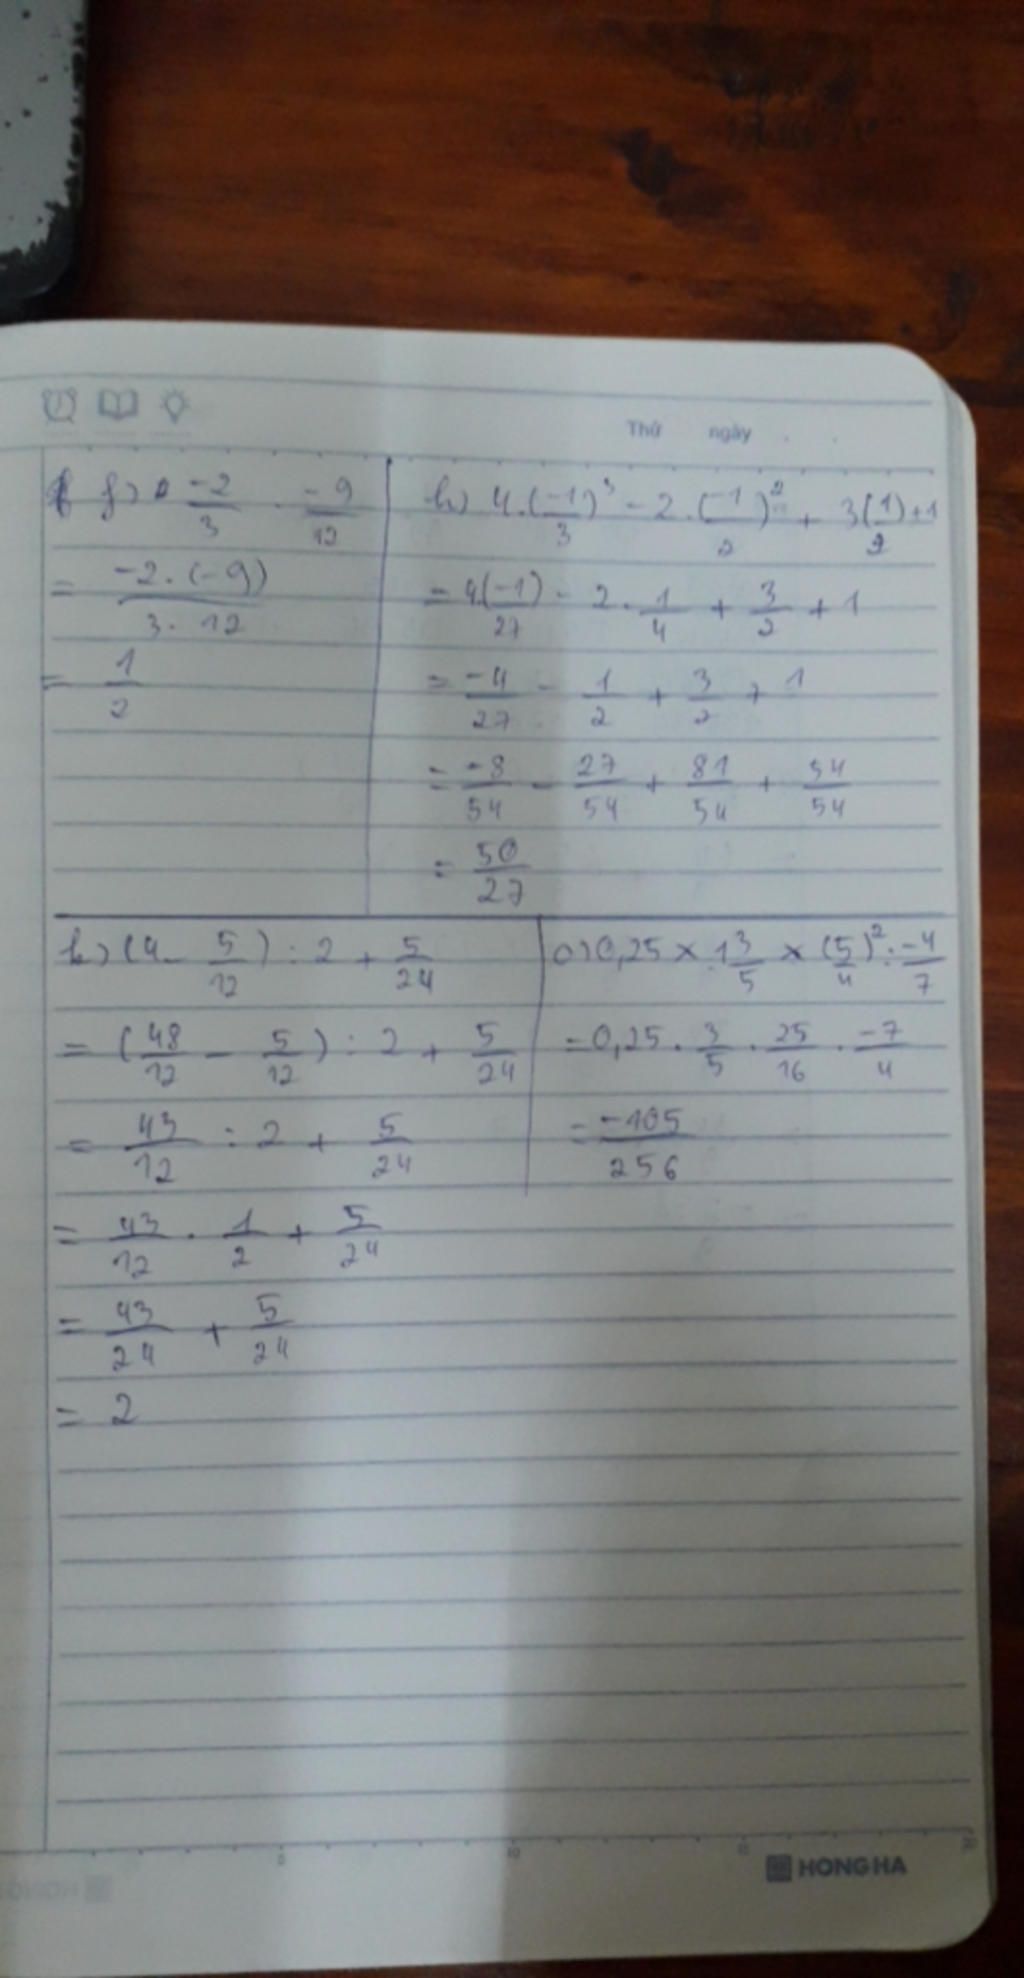 Thứ ngày
f) -2/3 . -9/12
= -2.(-9)/3.12
= 1/2
h) 4.(-1/3)³ - 2.(-1/2)² + 3(1/2)+1
= 4(-1)/27 - 2.1/4 + 3/2 + 1
= -4/27 - 1/2 + 3/2 + 1
= -8/54 - 27/54 + 81/54 + 54/54
= 50/27
k) (4 - 5/12) : 2 + 5/24
= (48/12 - 5/12) : 2 + 5/24
= 43/12 : 2 + 5/24
= 43/12 . 1/2 + 5/24
= 43/24 + 5/24
= 2
o) 0,25 × 1 3/5 × (5/4)² : -4/7
= 0,25 . 3/5 . 25/16 . -7/4
= -105/256
HONG HA